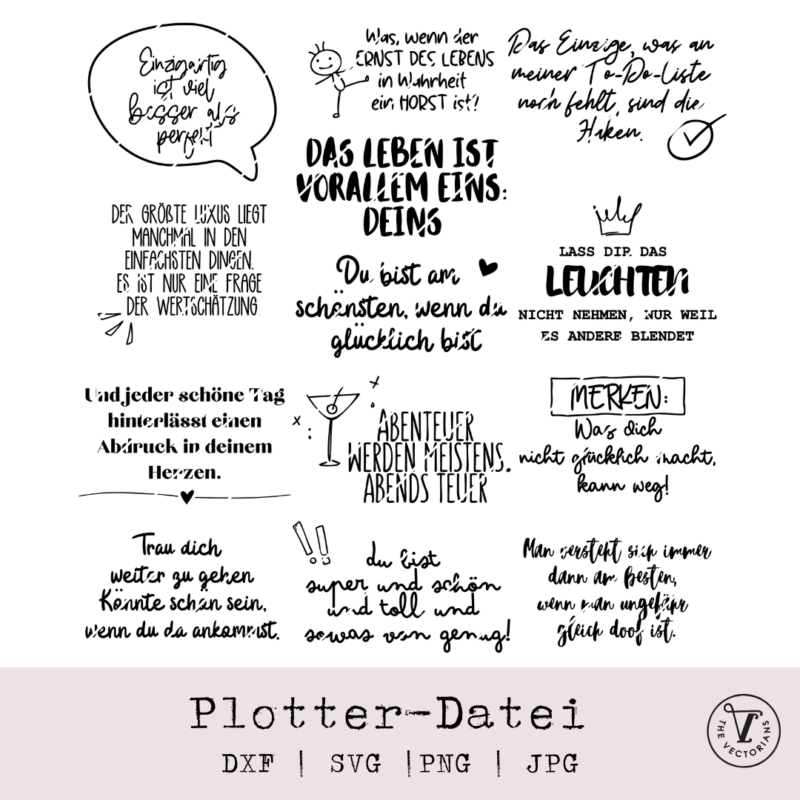 Einzigartig
ist viel
besser als
perfekt
Was, wenn der
ERNST DES LEBENS
in Wahrheit
ein HORST ist?
Das Einzige, was an
meiner To-Do-Liste
noch fehlt, sind die
Haken.
DAS LEBEN IST
VORALLEM EINS:
DEINS
DER GRÖßTE LUXUS LIEGT
MANCHMAL IN DEN
EINFACHSTEN DINGEN.
ES IST NUR EINE FRAGE
DER WERTSCHÄTZUNG
Du bist am
schönsten, wenn du
glücklich bist
LASS DIR DAS
LEUCHTEN
NICHT NEHMEN, NUR WEIL
ES ANDERE BLENDET
Und jeder schöne Tag
hinterlässt einen
Abdruck in deinem
Herzen.
ABENTEUER
WERDEN MEISTENS.
ABENDS TEUER
MERKEN:
Was dich
nicht glücklich macht,
kann weg!
Trau dich
weiter zu gehen
Könnte schön sein,
wenn du da ankommst.
!!
du bist
super und schön
und toll und
sowas von genug!
Man versteht sich immer
dann am besten,
wenn man ungefähr
gleich doof ist.
Plotter-Datei
DXF | SVG | PNG | JPG
THE VECTORIANS